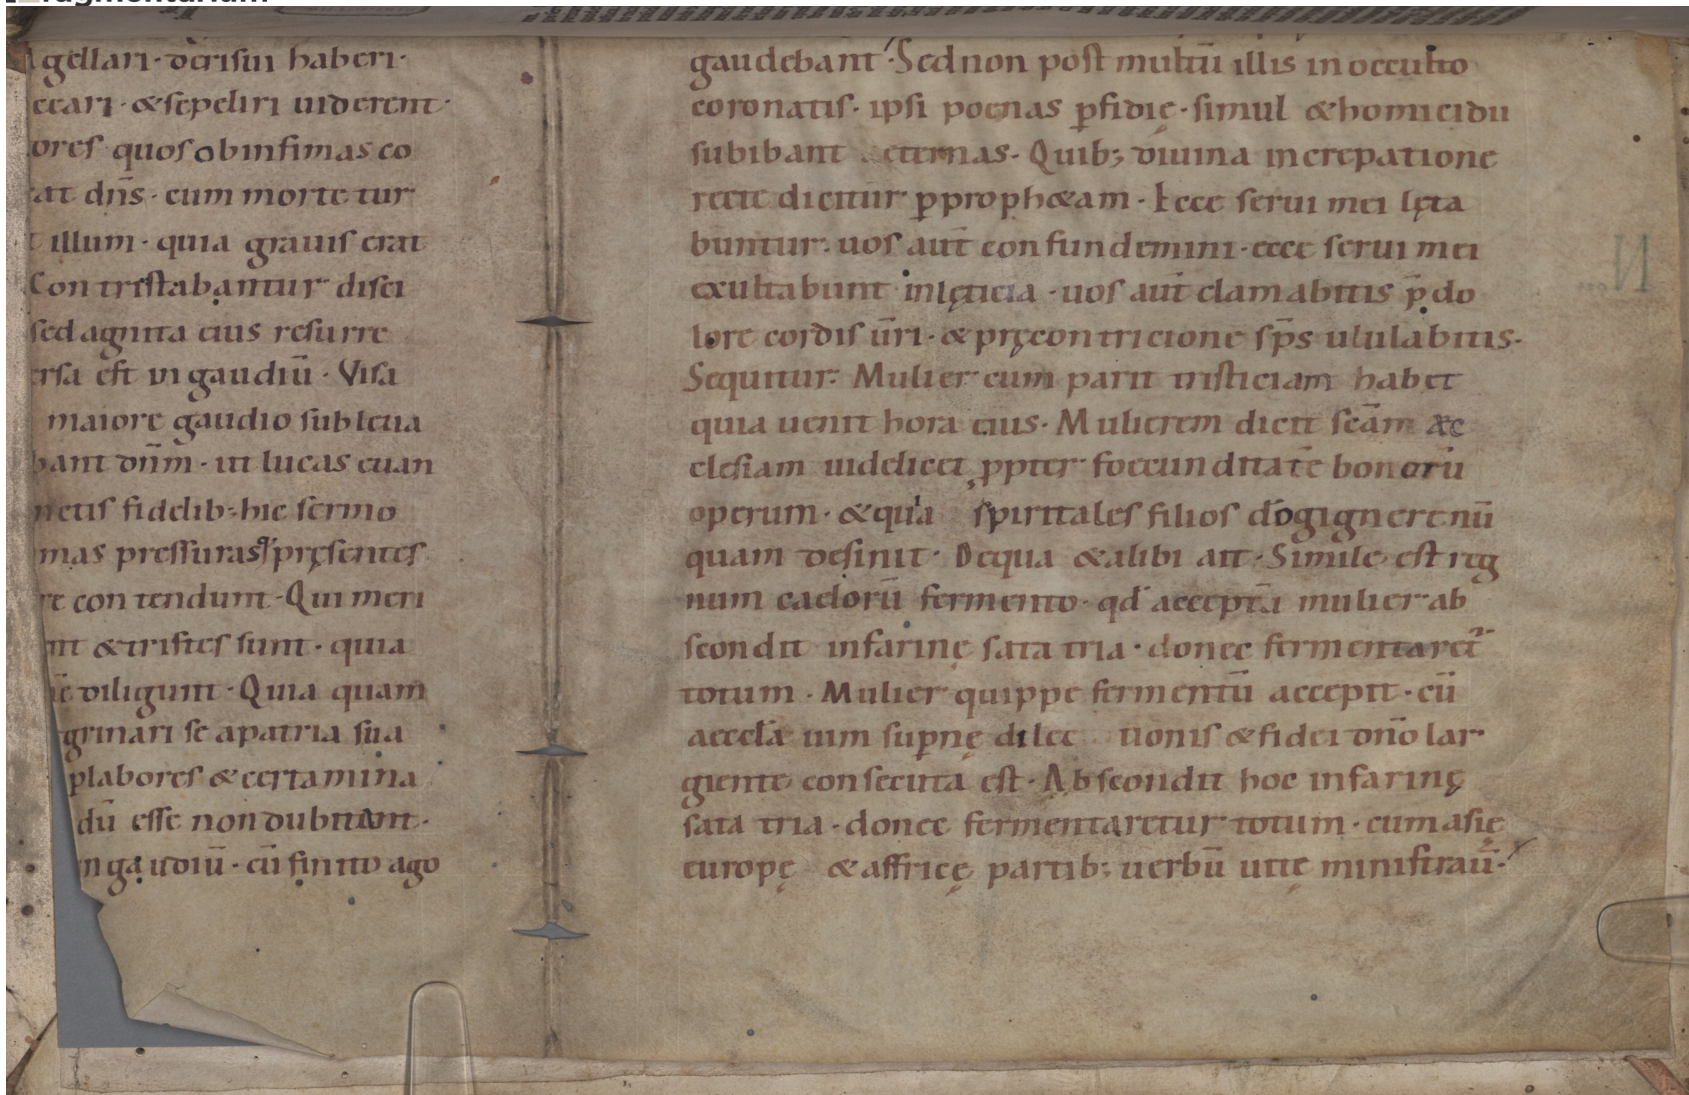 gellari · derisui haberi ·
ccari · & sepeliri uiderent ·
ores quos ob infimas co
at dn̄s · cum morte tur
illum · quia grauis erat
Contristabantur disci
sed agnita eius resurre
ersa est in gaudiū · Visa
maiore gaudio subleua
bant dn̄m · ut lucas euan
netis fidelib; hic sermo
mas pressuras q; pręsentes
re contendunt · Qui meri
nt & tristes sunt · quia
diligunt · Quia quam
grinari se a patria sua
p labores & certamina
dū esse non dubitant ·
in gaudiū · cū finito ago
gaudebant · Sed non post multū illis in occulto
coronatis · ipsi poenas ꝑfidię · simul & homicidii
subibant eternas · Quib; diuina increpatione
recte dicitur ꝑ proph&am · Ecce serui mei lęta
buntur · uos aut̄ confundemini · ecce serui mei
exultabunt in lęticia · uos aut̄ clamabitis p̄ do
lore cordis ūri · & prę contricione sp̄s ululabitis ·
Sequitur · Mulier cum parit tristiciam habet
quia uenit hora eius · Mulierem dicit scām æc
clesiam uidelicet ꝓpter foecunditatē bonorū
operum · & quia spiritales filios dō gignere nū
quam desinit · De qua & alibi ait · Simile est reg
num caelorū fermento · qd̄ acceptā mulier ab
scondit in farinę sata tria · donec fermentaret᷑
totum · Mulier quippe fermentū accepit · cū
accl̄a uim suꝑnę dilectionis & fidei dn̄o lar
giente consecuta est · Abscondit hoc in farinę
sata tria · donec fermentaretur totum · cum asię
europę & affricę partib; uerbū uitę ministrauit᷑ ·